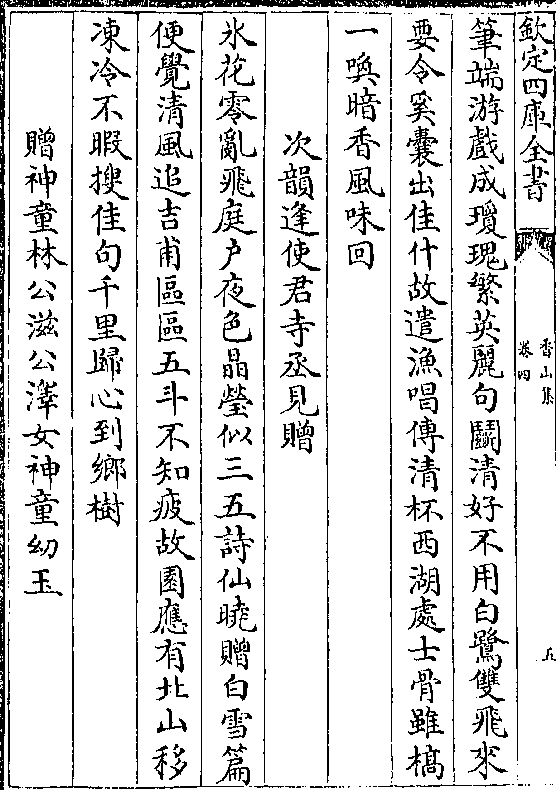 欽定四庫全書
香山集
卷四
五
筆端游戲成瓊瑰繁英麗句鬭清好不用白鷺雙飛來
要令奚囊出佳什故遣漁唱傳清杯西湖處士骨雖槁
一喚暗香風味回
次韻逢使君寺丞見贈
氷花零亂飛庭户夜色晶瑩似三五詩仙曉贈白雪篇
便覺清風追吉甫區區五斗不知疲故園應有北山移
凍冷不暇搜佳句千里歸心到鄉樹
贈神童林公滋公澤女神童幼玉